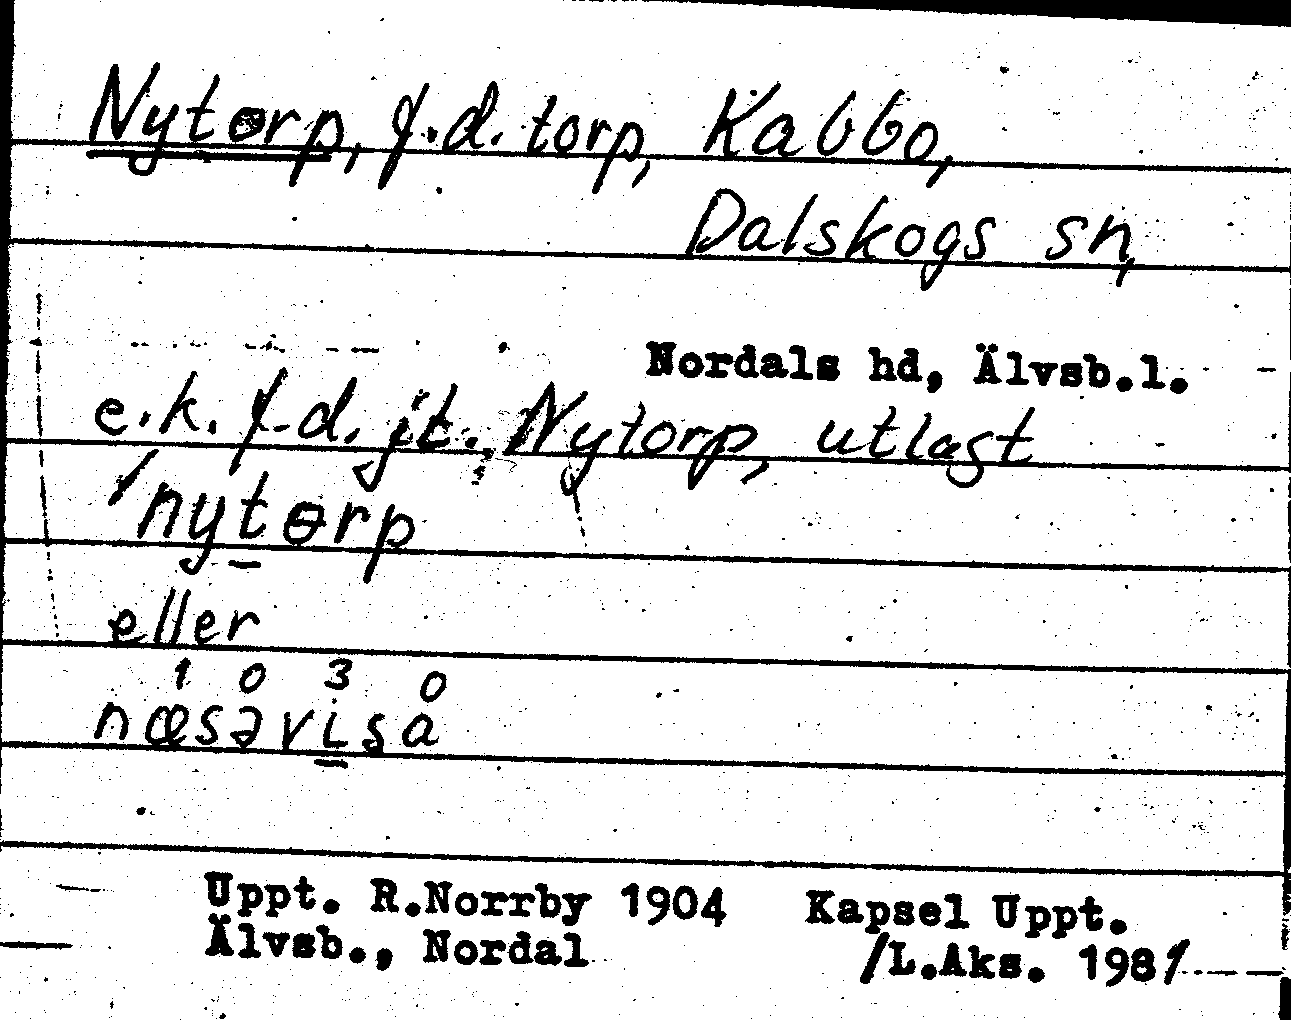 Nytorp, f.d. torp, Kabbo,
Dalskogs sn,
Nordals hd, Älvsb.l.
e.k. f.d. jt. Nytorp, utlagt
´nytɵrp
eller
1 0 3 0
nœsəvisa
Uppt. R.Norrby 1904 Kapsel Uppt.
Älvsb., Nordal /L.Aks. 1981